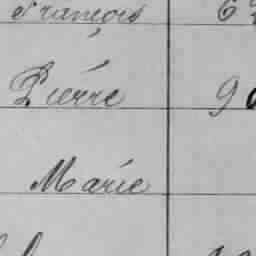 François 6
Pierre 90
Marie